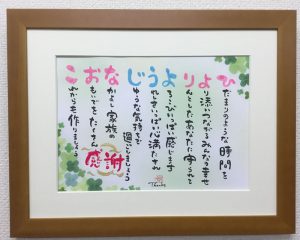 ひだまりのような時間を
より添いつながるみんなの幸せ
りんとしたあなたに守られて
よろこびいっぱい感じます
うれしさいっぱい心満たされ
じゆうな気持ちで
過ごしましょう
なかよし家族の
おもいでをたくさん
これからも作りましょう
感謝
Thanks